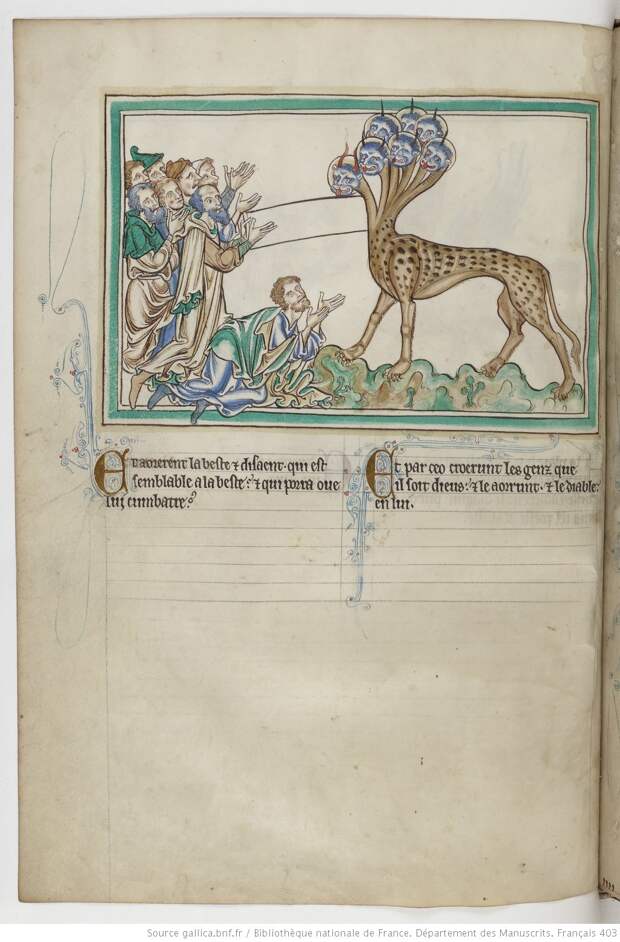 Et aorerent la beste ⁊ disaent. qui est
semblable a la beste. ⁊ qui porra oue
lui cumbatre.
Et par ceo croerunt les genz que
il soit dieus. ⁊ le aorrunt. ⁊ le diable
en lui.
Source gallica.bnf.fr / Bibliothèque nationale de France. Département des Manuscrits. Français 403